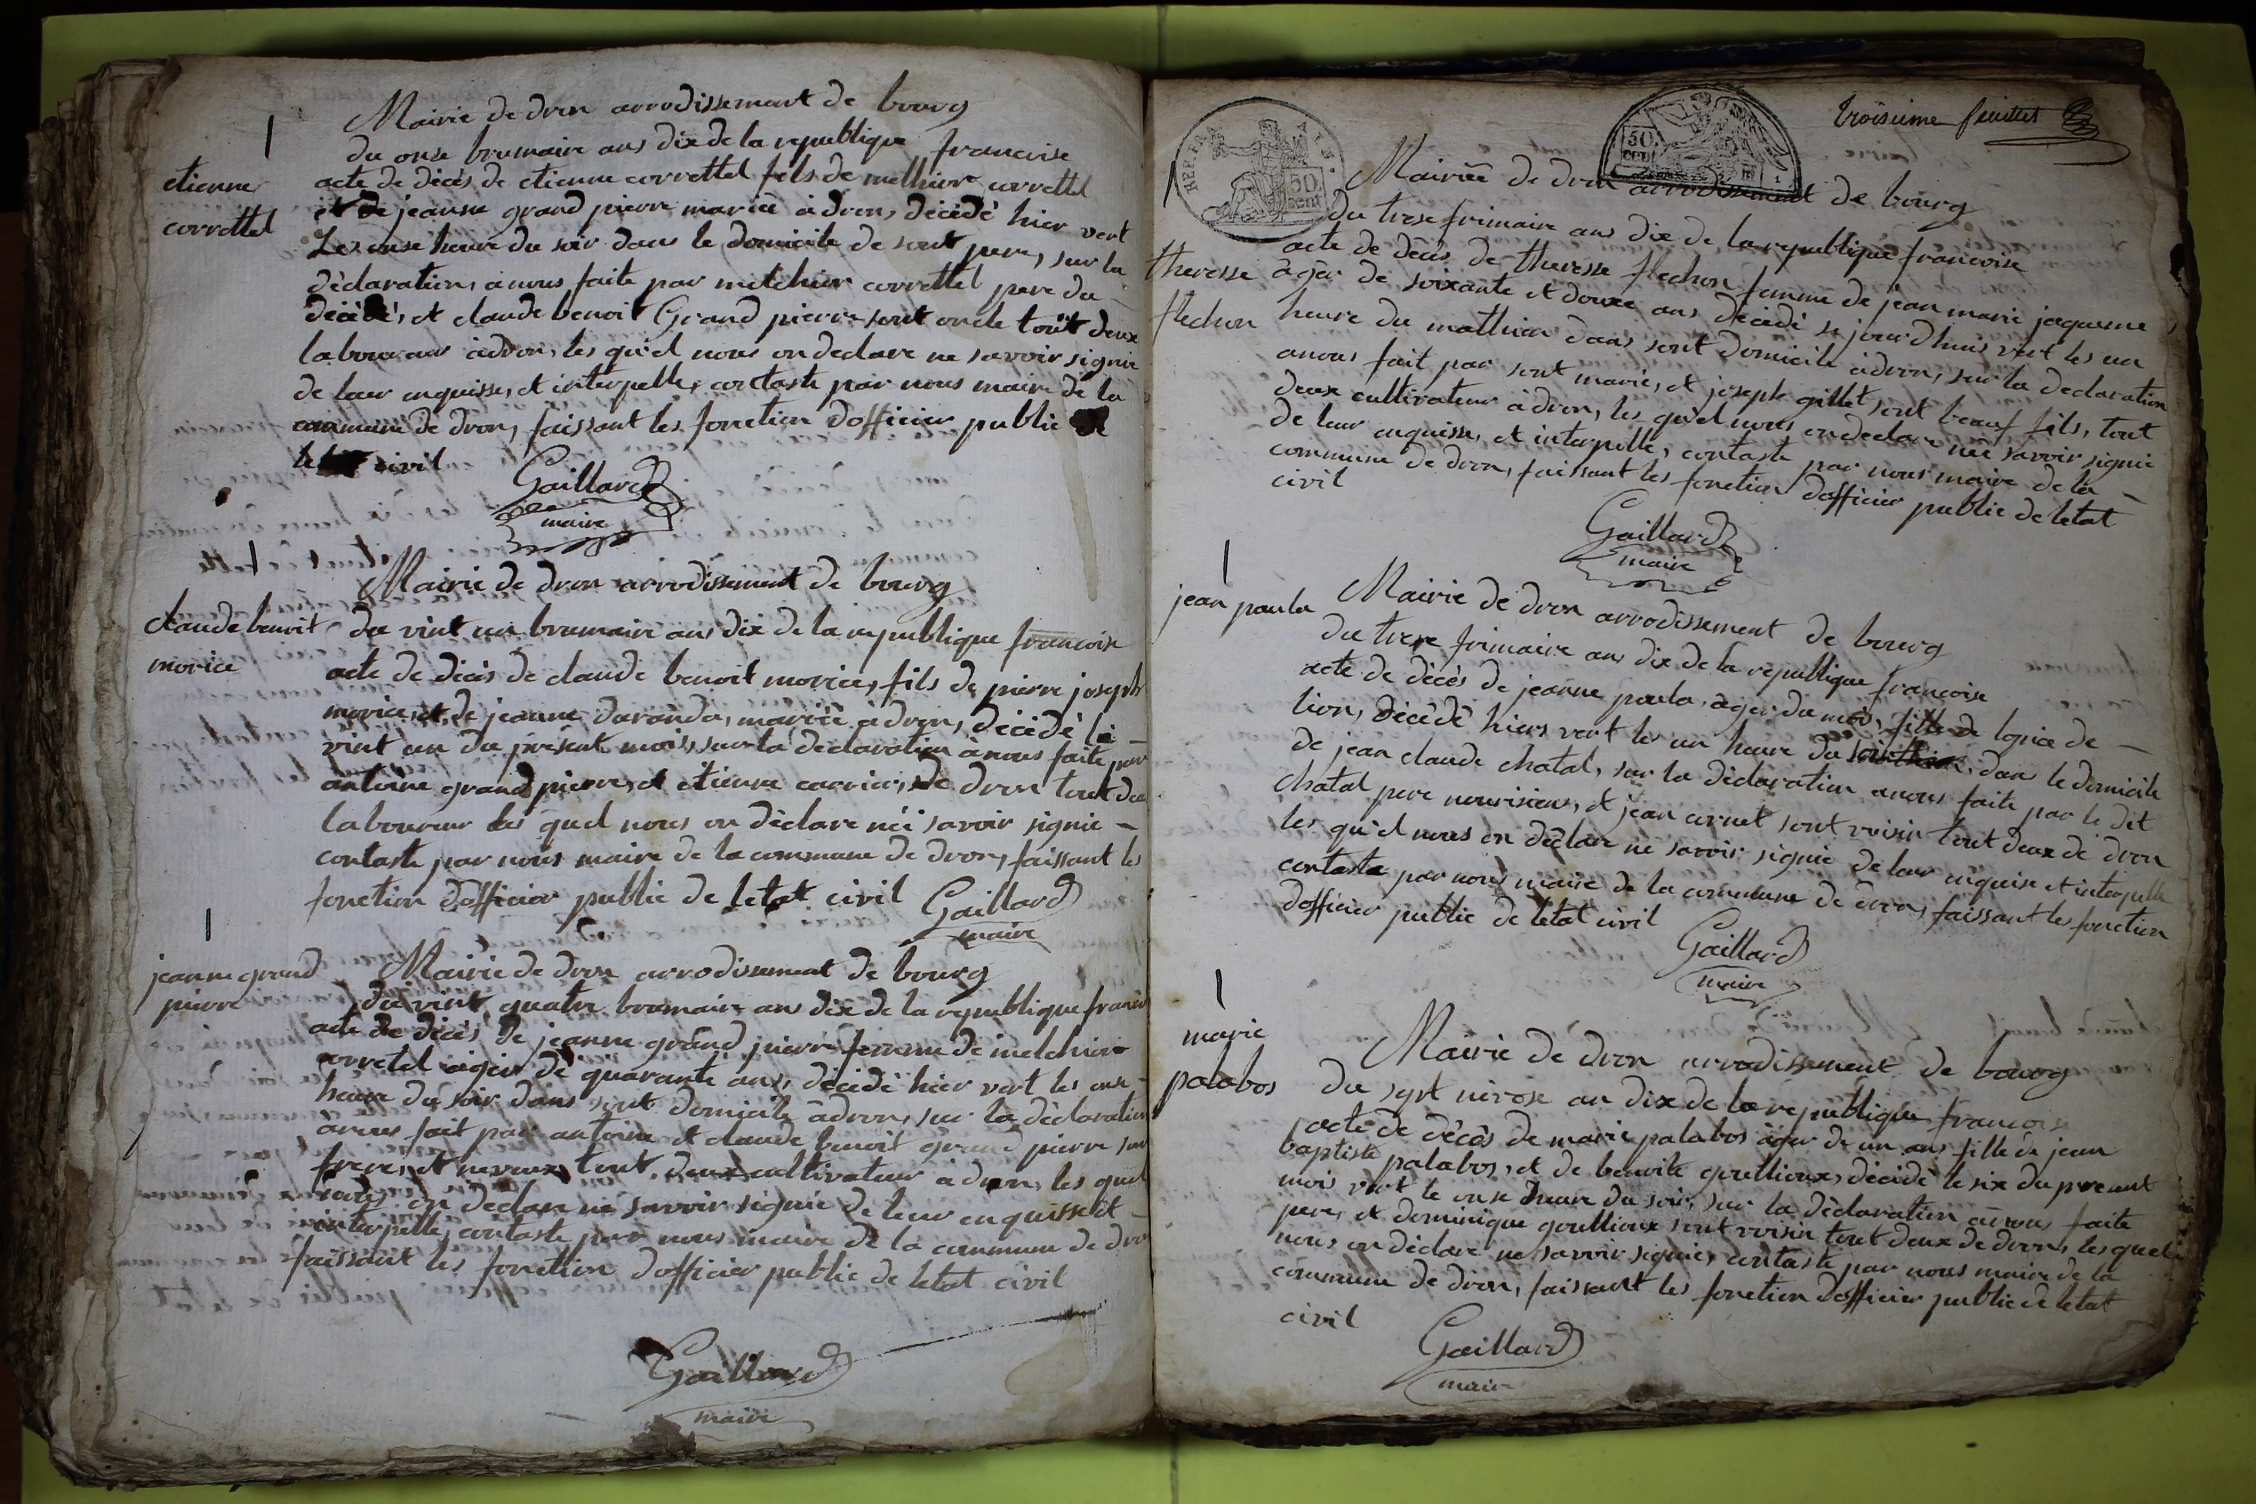 Mairie de dron arrodissemant de bourg
du onse brumaire ans dix de la republique francoise
etienne
correttel
acte de décès de etienne correttel fils de melhior correttel
et de jeanne grand pierre mariée à dron, décédé hier vert
Les onse heure du soir dans le domicile de sont pere, sur la
déclaration, a nous faite par melchior correttel pere du
décédé, et claude benoit Grand pierre sont oncle tout deux
laboureur àdron, les qu'el nous on declare ne savoir signie
de leur enquisse, et interpelle, contaste par nous maire de la
commune de dron, faissant les fonction dofficier public de
civil
Gaillard
maire
Mairie de dron arrodissement de bourg
claude benoit
morice
du vint un brumaire ans dix de la republique francoise
acte de décès de claude benoit morice, fils de pierre joseph
morice, et de jeanne daranda, mariée à dron, décédé le
vint un du present mois, sur la déclaration à nous faite par
antoine grand pierre, et etienne carrier, de dron tout deu
laboureur les quel nous on déclare néé savoir signie
contaste par nous maire de la commune de dron, faissant les
fonction d'officier public de letat civil
Gaillard
maire
jeanne grand
pierre
Mairie de dron arrodissement de bourg
du vint quatre brumaire ans dix de la republique francoi
acte de décès de jeanne grand pierre femme de melchior
corretel agèr de quarante ans, décédé hier vert les onse
heure du soir dans sont domicile àdron, sur la déclaration
anous fait par antoine et claude benoit grand pierre son
frere, et neveux, tout deux cultivateur a dron, les quel
on déclare né savoir signie de leur enquisse et
interpelle, contaste par nous maire de la commune de dron
faissant les fonction dofficier public de letat civil
Gaillard
maire
troisieme feuillet
50 cent
50 cent
Mairie de dron arrodissement de bourg
du trese frimaire ans dix de la republique francoise
theresse
flechon
acte de décès de theresse flechon femme de jean marie jaqueme
àgèr de soixante et douxe ans décédé sejourdhuis vert les un
heure du mathien dans sont domicile àdron, sur la declaration
anous fait par sont marie, et joseph gillet sont beauf fils, tout
deux cultivateur à dron, les qu'el nous on declare née savoir signie
de leur enquisse, et interpelle, contaste par nous maire de la
commune de dron, faissant les fonction dofficier public de letat
civil
Gaillard
maire
jean paula
Mairie de dron arrodissement de bourg
du trese frimaire ans dix de la republique francoise
acte de décès de jeanne paula, àger du moi, fille de lopice de
lion, décédé hiers vert les un heure du dans le domicile
de jean claude chatal, sur la déclaration anous faite par le dit
chatal pere nourisieur, et jean cornet sont voisin tout deux de dron
les qu'el nous on déclare né savoir signie de leur enquise et interpelle
contaste par nous maire de la commune de dron, faissant les fonction
dofficier public de letat civil
Gaillard
maire
marie
palabos
Mairie de dron arrodissement de bourg
du sept nivose an dix de la republique francoise
acte de décès de marie palabos àger de un ans fille de jean
baptiste palabos, et de benoite goullioux, décidé le six du presant
mois vert le onse heure du soir, sur la déclaration anous faite
pere, et dominique goullioux sont voisin tout deux de dron, les quel
nous on déclare ne savoir signie, contaste par nous maire de la
commune de dron, faissant les fonction dofficier public de letat
civil
Gaillard
maire